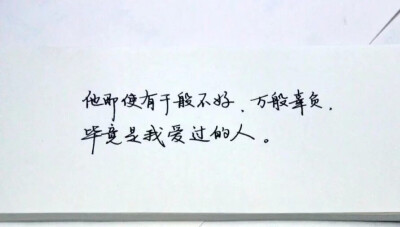 他即使有千般不好，万般辜负，
毕竟是我爱过的人。